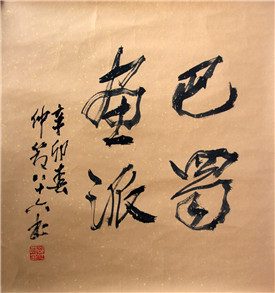 巴蜀
画派
辛卯春
仲谷八十六书